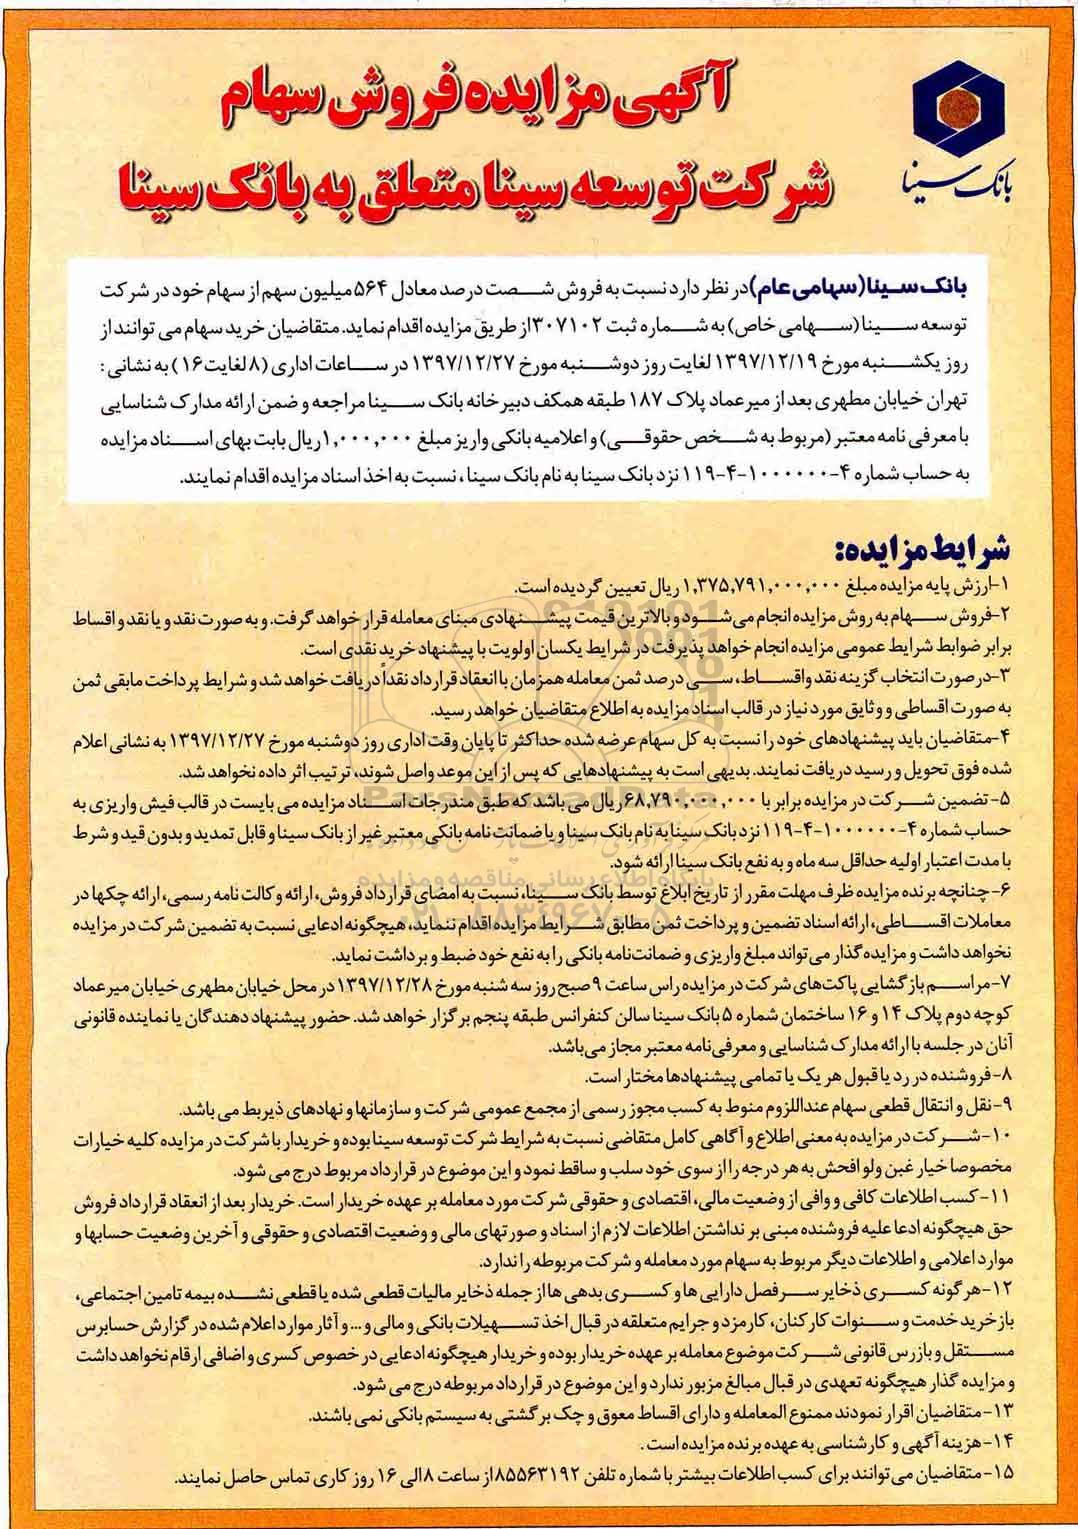 آگهی مزایده فروش سهام
شرکت توسعه سینا متعلق به بانک سینا
بانک سینا
بانک سینا(سهامی عام)در نظر دارد نسبت به فروش شصت درصد معادل ۵۶۴میلیون سهم از سهام خود در شرکت
توسعه سینا (سهامی خاص) به شماره ثبت ۳۰۷۱۰۲از طریق مزایده اقدام نماید. متقاضیان خرید سهام می توانند از
روز یکشنبه مورخ ۱۳۹۷/۱۲/۱۹ لغایت روز دوشنبه مورخ ۱۳۹۷/۱۲/۲۷ در ساعات اداری (۸لغایت۱۶) به نشانی :
تهران خیابان مطهری بعد از میرعماد پلاک ۱۸۷ طبقه همکف دبیرخانه بانک سینا مراجعه و ضمن ارائه مدارک شناسایی
با معرفی نامه معتبر (مربوط به شخص حقوقی) و اعلامیه بانکی واریز مبلغ ۱,۰۰۰,۰۰۰ریال بابت بهای اسناد مزایده
به حساب شماره ۴-۱۰۰۰۰۰۰-۴-۱۱۹ نزد بانک سینا به نام بانک سینا ، نسبت به اخذ اسناد مزایده اقدام نمایند.
شرایط مزایده:
۱-ارزش پایه مزایده مبلغ ۱,۳۷۵,۷۹۱,۰۰۰,۰۰۰ ریال تعیین گردیده است.
۲-فروش سهام به روش مزایده انجام می‌شود و بالاترین قیمت پیشنهادی مبنای معامله قرار خواهد گرفت. و به صورت نقد و یا نقد و اقساط
برابر ضوابط شرایط عمومی مزایده انجام خواهد پذیرفت در شرایط یکسان اولویت با پیشنهاد خرید نقدی است.
۳-درصورت انتخاب گزینه نقد واقساط، سی درصد ثمن معامله همزمان با انعقاد قرارداد نقداً دریافت خواهد شد و شرایط پرداخت مابقی ثمن
به صورت اقساطی و وثایق مورد نیاز در قالب اسناد مزایده به اطلاع متقاضیان خواهد رسید.
۴-متقاضیان باید پیشنهادهای خود را نسبت به کل سهام عرضه شده حداکثر تا پایان وقت اداری روز دوشنبه مورخ ۱۳۹۷/۱۲/۲۷ به نشانی اعلام
شده فوق تحویل و رسید دریافت نمایند. بدیهی است به پیشنهادهایی که پس از این موعد واصل شوند، ترتیب اثر داده نخواهد شد.
۵- تضمین شرکت در مزایده برابر با ۶۸,۷۹۰,۰۰۰,۰۰۰ریال می باشد که طبق مندرجات اسناد مزایده می بایست در قالب فیش واریزی به
حساب شماره ۴-۱۰۰۰۰۰۰-۴-۱۱۹ نزد بانک سینا به نام بانک سینا و یا ضمانت نامه بانکی معتبر غیر از بانک سینا و قابل تمدید و بدون قید و شرط
با مدت اعتبار اولیه حداقل سه ماه و به نفع بانک سینا ارائه شود.
۶-چنانچه برنده مزایده ظرف مهلت مقرر از تاریخ ابلاغ توسط بانک سینا، نسبت به امضای قرارداد فروش، ارائه و کالت نامه رسمی، ارائه چکها در
معاملات اقساطی، ارائه اسناد تضمین و پرداخت ثمن مطابق شرایط مزایده اقدام ننماید، هیچگونه ادعایی نسبت به تضمین شرکت در مزایده
نخواهد داشت و مزایده گذار می‌تواند مبلغ واریزی و ضمانت‌نامه بانکی را به نفع خود ضبط و برداشت نماید.
۷-مراسم بازگشایی پاکت‌های شرکت در مزایده راس ساعت ۹ صبح روز سه شنبه مورخ ۱۳۹۷/۱۲/۲۸ در محل خیابان مطهری خیابان میرعماد
کوچه دوم پلاک ۱۴ و ۱۶ ساختمان شماره ۵ بانک سینا سالن کنفرانس طبقه پنجم برگزار خواهد شد. حضور پیشنهاد دهندگان یا نماینده قانونی
آنان در جلسه با ارائه مدارک شناسایی و معرفی‌نامه معتبر مجاز می‌باشد.
۸-فروشنده در رد یا قبول هر یک یا تمامی پیشنهادها مختار است.
۹-نقل و انتقال قطعی سهام عنداللزوم منوط به کسب مجوز رسمی از مجمع عمومی شرکت و سازمانها و نهادهای ذیربط می باشد.
۱۰-شرکت در مزایده به معنی اطلاع و آگاهی کامل متقاضی نسبت به شرایط شرکت توسعه سینا بوده و خریدار با شرکت در مزایده کلیه خیارات
مخصوصا خیار غبن ولو افحش به هر درجه را از سوی خود سلب و ساقط نمود و این موضوع در قرارداد مربوط درج می شود.
۱۱-کسب اطلاعات کافی و وافی از وضعیت مالی، اقتصادی و حقوقی شرکت مورد معامله بر عهده خریدار است. خریدار بعد از انعقاد قرارداد فروش
حق هیچگونه ادعا علیه فروشنده مبنی بر نداشتن اطلاعات لازم از اسناد و صورتهای مالی و وضعیت اقتصادی و حقوقی و آخرین وضعیت حسابها و
موارد اعلامی و اطلاعات دیگر مربوط به سهام مورد معامله و شرکت مربوطه را ندارد.
۱۲-هرگونه کسری ذخایر سرفصل دارایی ها و کسری بدهی ها از جمله ذخایر مالیات قطعی شده یا قطعی نشده بیمه تامین اجتماعی،
بازخرید خدمت و سنوات کارکنان، کارمزد و جرایم متعلقه در قبال اخذ تسهیلات بانکی و مالی و ... و آثار موارد اعلام شده در گزارش حسابرس
مستقل و بازرس قانونی شرکت موضوع معامله بر عهده خریدار بوده و خریدار هیچگونه ادعایی در خصوص کسری و اضافی ارقام نخواهد داشت
و مزایده گذار هیچگونه تعهدی در قبال مبالغ مزبور ندارد و این موضوع در قرارداد مربوطه درج می شود.
۱۳-متقاضیان اقرار نمودند ممنوع المعامله و دارای اقساط معوق و چک برگشتی به سیستم بانکی نمی باشند.
۱۴-هزینه آگهی و کارشناسی به عهده برنده مزایده است .
۱۵-متقاضیان می‌توانند برای کسب اطلاعات بیشتر با شماره تلفن ۸۵۵۶۳۱۹۲از ساعت ۸الی ۱۶ روز کاری تماس حاصل نمایند.
ParsNamadData
پایگاه اطلاع رسانی مناقصه و مزایده